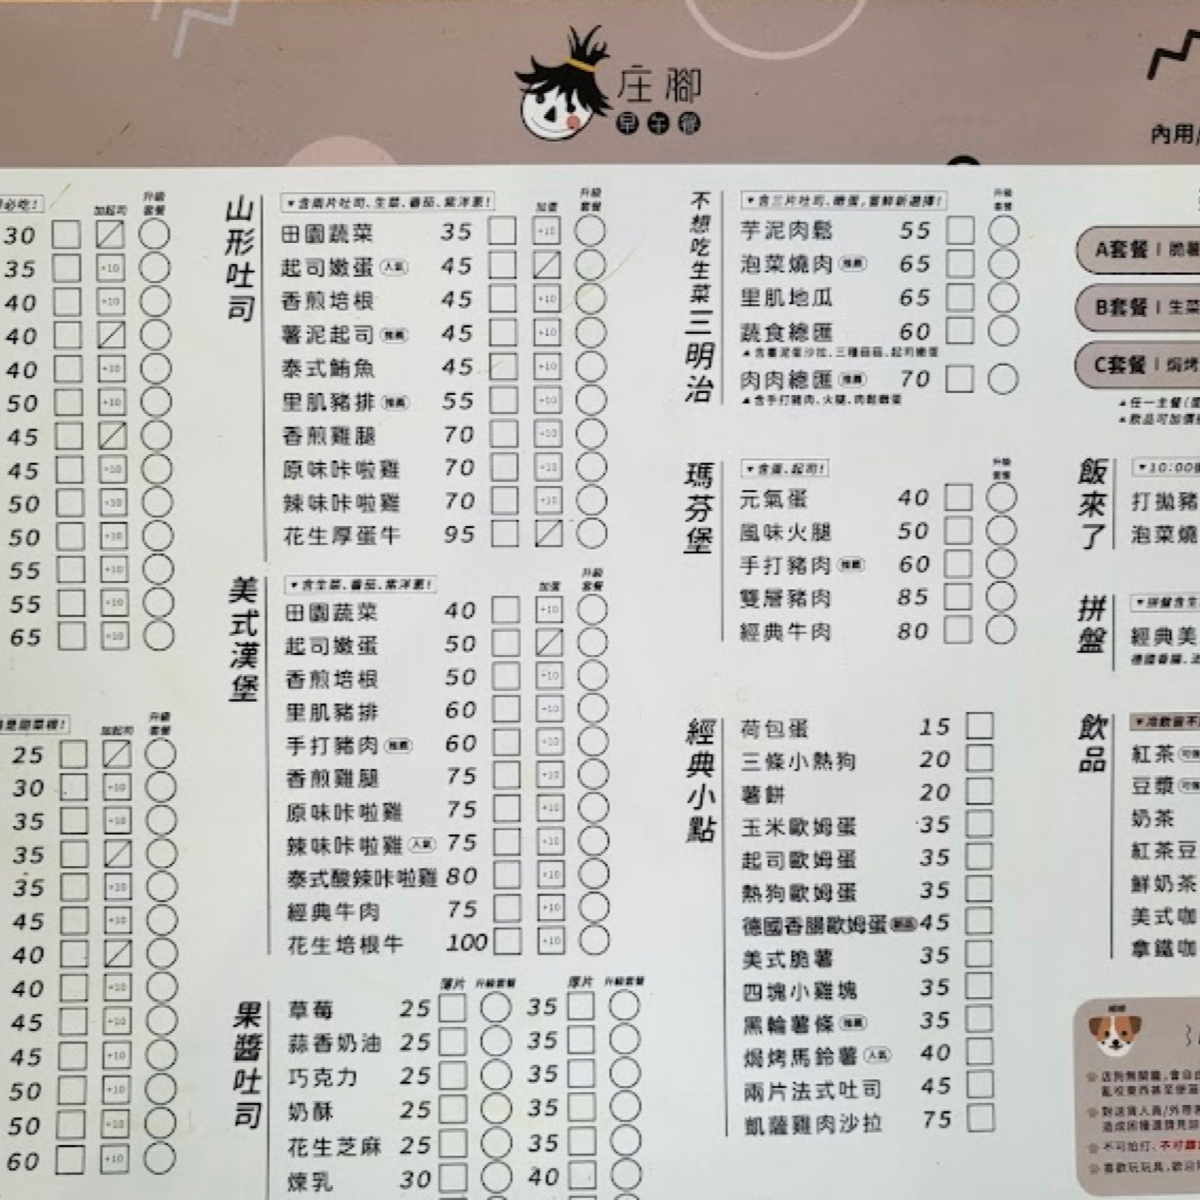 庄腳
早午餐
內用/
必吃!
加起司 升級套餐
30
35 +10
40 +10
40
40 +10
50 +10
45
45 +10
50 +10
50 +10
55 +10
55 +10
65 +10
加起司 升級套餐
25
30 +10
35 +10
35
35 +10
45 +10
40
40 +10
45 +10
45 +10
50 +10
50 +10
60 +10
山形吐司
▼含兩片吐司、生菜、番茄、紫洋蔥!
加蛋 升級套餐
田園蔬菜 35 +10
起司嫩蛋 人氣 45
香煎培根 45 +10
薯泥起司 推薦 45 +10
泰式鮪魚 45 +10
里肌豬排 推薦 55 +10
香煎雞腿 70 +10
原味咔啦雞 70 +10
辣味咔啦雞 70 +10
花生厚蛋牛 95
美式漢堡
▼含生菜、番茄、紫洋蔥!
加蛋 升級套餐
田園蔬菜 40 +10
起司嫩蛋 50
香煎培根 50 +10
里肌豬排 60 +10
手打豬肉 推薦 60 +10
香煎雞腿 75 +10
原味咔啦雞 75 +10
辣味咔啦雞 人氣 75 +10
泰式酸辣咔啦雞 80 +10
經典牛肉 75 +10
花生培根牛 100 +10
果醬吐司
薄片 升級套餐 厚片 升級套餐
草莓 25 35
蒜香奶油 25 35
巧克力 25 35
奶酥 25 35
花生芝麻 25 35
煉乳 30 40
不想吃生菜三明治
▼含三片吐司、嫩蛋,嘗鮮新選擇!
升級套餐
芋泥肉鬆 55
泡菜燒肉 推薦 65
里肌地瓜 65
蔬食總匯 60
▲含薯泥蛋沙拉、三種菇菇、起司嫩蛋
肉肉總匯 推薦 70
▲含手打豬肉、火腿、肉鬆嫩蛋
瑪芬堡
▼含蛋、起司!
升級套餐
元氣蛋 40
風味火腿 50
手打豬肉 推薦 60
雙層豬肉 85
經典牛肉 80
經典小點
荷包蛋 15
三條小熱狗 20
薯餅 20
玉米歐姆蛋 35
起司歐姆蛋 35
熱狗歐姆蛋 35
德國香腸歐姆蛋 新品 45
美式脆薯 35
四塊小雞塊 35
黑輪薯條 推薦 35
焗烤馬鈴薯 人氣 40
兩片法式吐司 45
凱薩雞肉沙拉 75
A套餐 | 脆薯
B套餐 | 生菜
C套餐 | 焗烤
▲任一主餐
▲飲品可加價
飯來了
▼10:00
打拋豬
泡菜燒
拼盤
▼拼盤含生
經典美
德國香腸、法
飲品
紅茶
豆漿
奶茶
紅茶豆
鮮奶茶
美式咖
拿鐵咖
店狗無關籠,會自由
對送貨人員/外帶客
造成困擾還請見諒
不可拍打、不可餵
喜歡玩玩具,歡迎